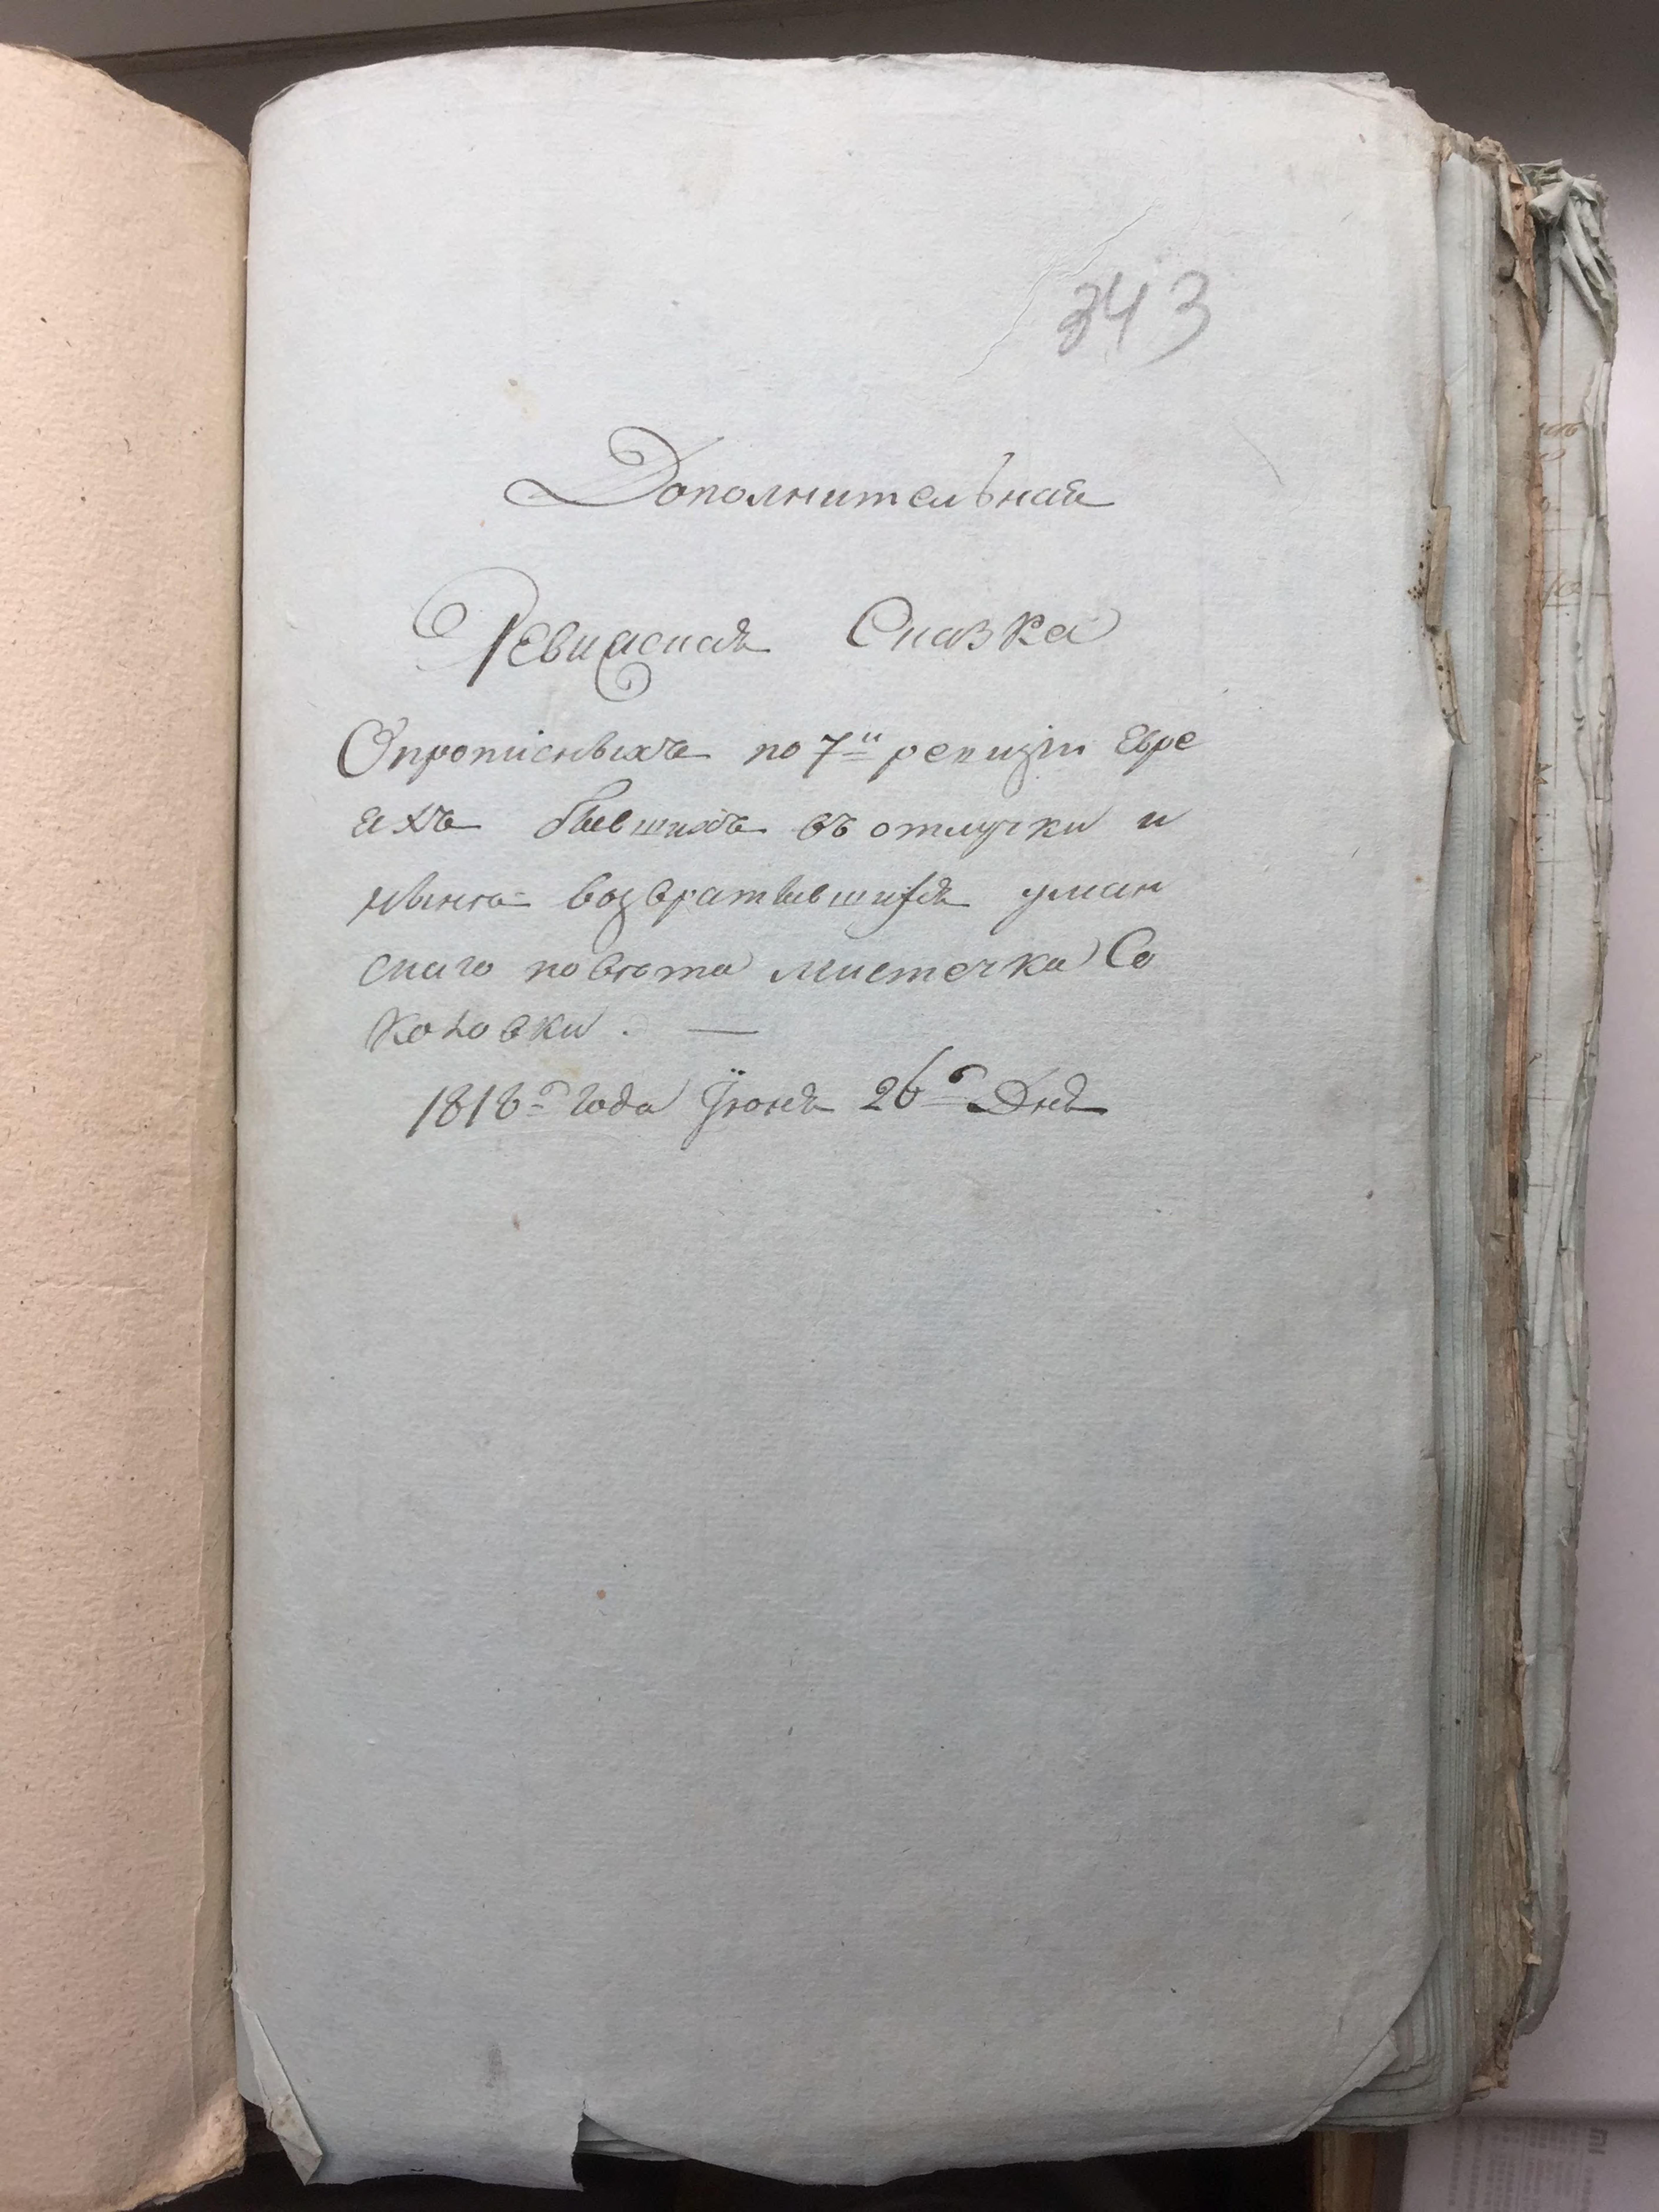 343
Дополнительная
Ревизская Сказка
Опрописныхъ по 7й ревизіи Евре
яхъ бывшихъ въ отлучки и
нынѣ возвратившихся уман
скаго повѣта мистечка Со
коловки. —
1818го года Іюня 26го Дня